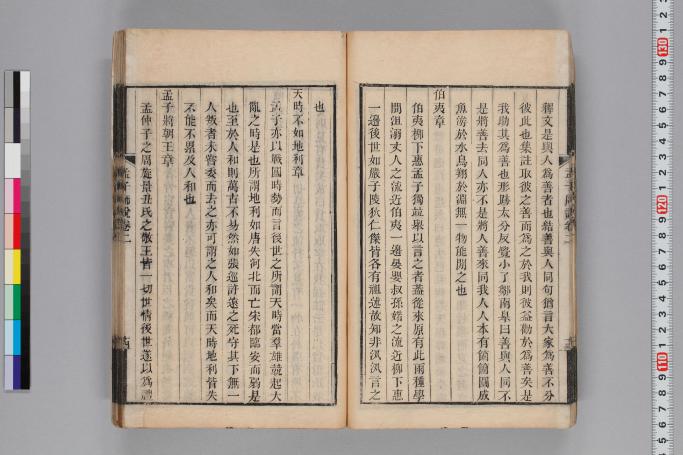 釋文是與人爲善者也結善與人同句猶言大家爲善不分
彼此也集註取彼之善而爲之於我則彼益勸於爲善矣是
我助其爲善也形跡太分反覺小了鄒南皋曰善與人同不
是將善去同人亦不是將人善來同我人人本有箇箇圓成
魚游於水鳥翔於淵無一物能間之也
伯夷章
伯夷柳下惠孟子獨竝舉以言之者蓋從來原有此兩種學
問沮溺丈人之流近伯夷一邊晏嬰叔孫婼之流近柳下惠
一邊後世如嚴子陵狄仁傑皆各有祖述故知非汎汎言之
也
天時不如地利章
孟子亦以戰國時勢而言後世之所謂天時當羣雄競起大
亂之時是也所謂地利如唐失河北而亡宋都臨安而弱是
也至於人和則萬古不易然如張巡許遠之死守其下無一
人叛者未嘗委而去之亦可謂之人和矣而天時地利皆失
不能不累及人和也
孟子將朝王章
孟仲子之周旋景丑氏之敬王皆一切世情後世遂以爲禮
孟子師說卷二